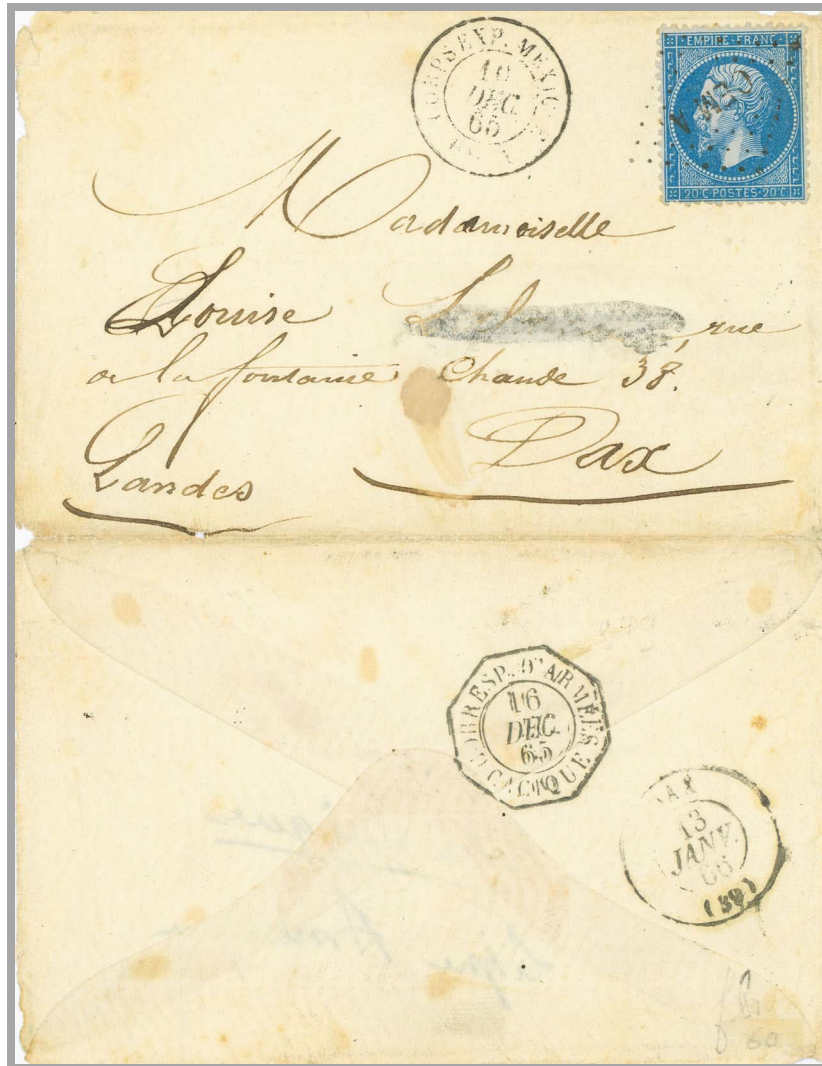 CORPS EXP. MEXIQUE
10
DEC.
65
EMPIRE FRANC
CEMA
20 C POSTES 20 C
Mademoiselle
Louise , rue
de la fontaine Chaude 38.
Dax
Landes
CORRESP. D'ARMÉES
16
DEC.
65
CACIQUE
DAX
13
JANV.
66
(39)